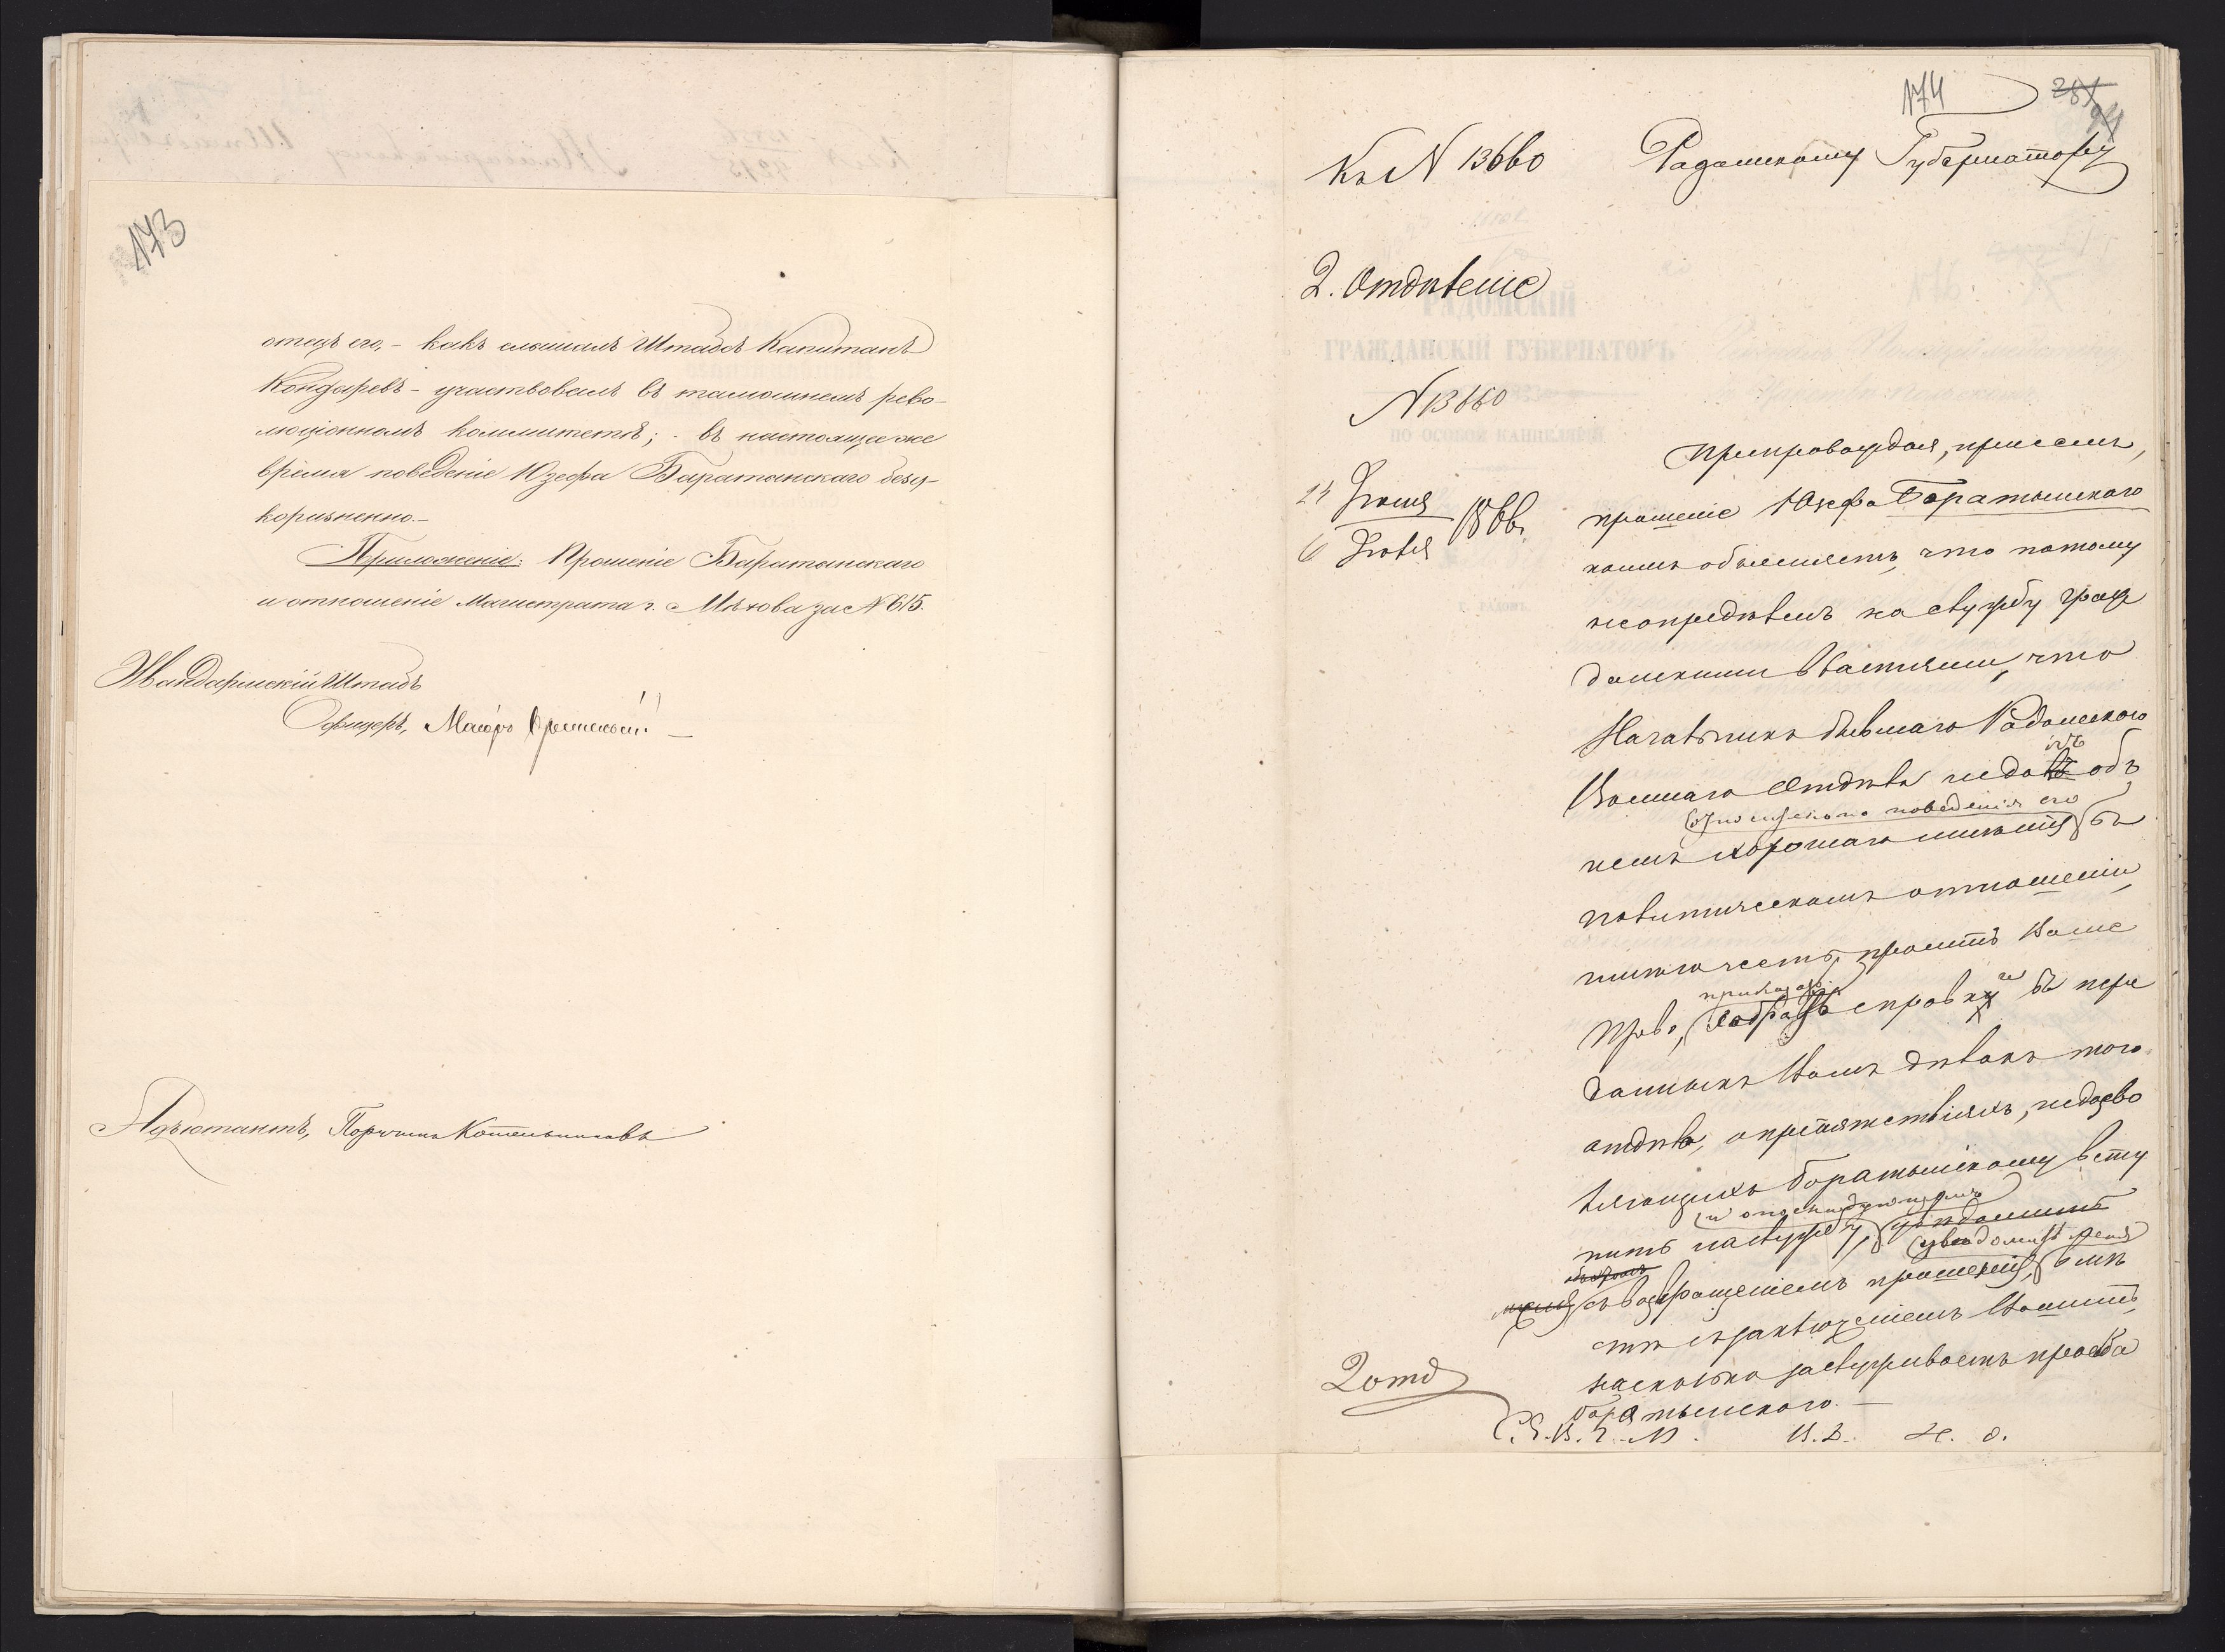 173
отецъ его, – какъ слышалъ Штабсъ Капитанъ
Кондаревъ – участвовалъ въ тамошнемъ рево-
люціонномъ коммитетѣ; – въ настоящее же
время поведеніе Юзефа Баратынскаго безу-
коризненно. –
Приложеніе: Прошеніе Баратынскаго
и отношеніе Магистрата г. Мѣхова за № 615.
Жандармскій Штабъ
Офицеръ, Маіоръ
Адъютантъ, Поручикъ Котельниковъ
174
281
94
Къ № 13660
Радомскому Губернатору
2. Отдѣленіе
РАДОМСКІЙ
ГРАЖДАНСКІЙ ГУБЕРНАТОРЪ
№ 13660
ПО ОСОБОЙ КАНЦЕЛЯРІИ
24 Іюня
6 Іюля 1866
Препровождая, при семъ,
прошеніе Юзефа Баратынскаго
коимъ объясняетъ, что потому
неопредѣленъ на службу граж
данскими властями, что
Начальникъ бывшаго Радомскаго
Военнаго Отдѣла недалъ объ
относительно поведенія его
немъ хорошаго мнѣнія въ
политическомъ отношеніи
имѣю честь просить Ваше
приказать
Прево, собрать справку въ пере
данныхъ Вамъ дѣлахъ того
отдѣла, о препятствіяхъ, недозво
ляющихъ Баратынскому всту
и о послѣдующемъ
пить на службу, увѣдомить
увѣдомить меня
съ возвращеніемъ прошенія, вмѣ
стѣ съ заключеніемъ Вашимъ
насколько заслуживаетъ просьба
Баратынскаго. –
2 отд